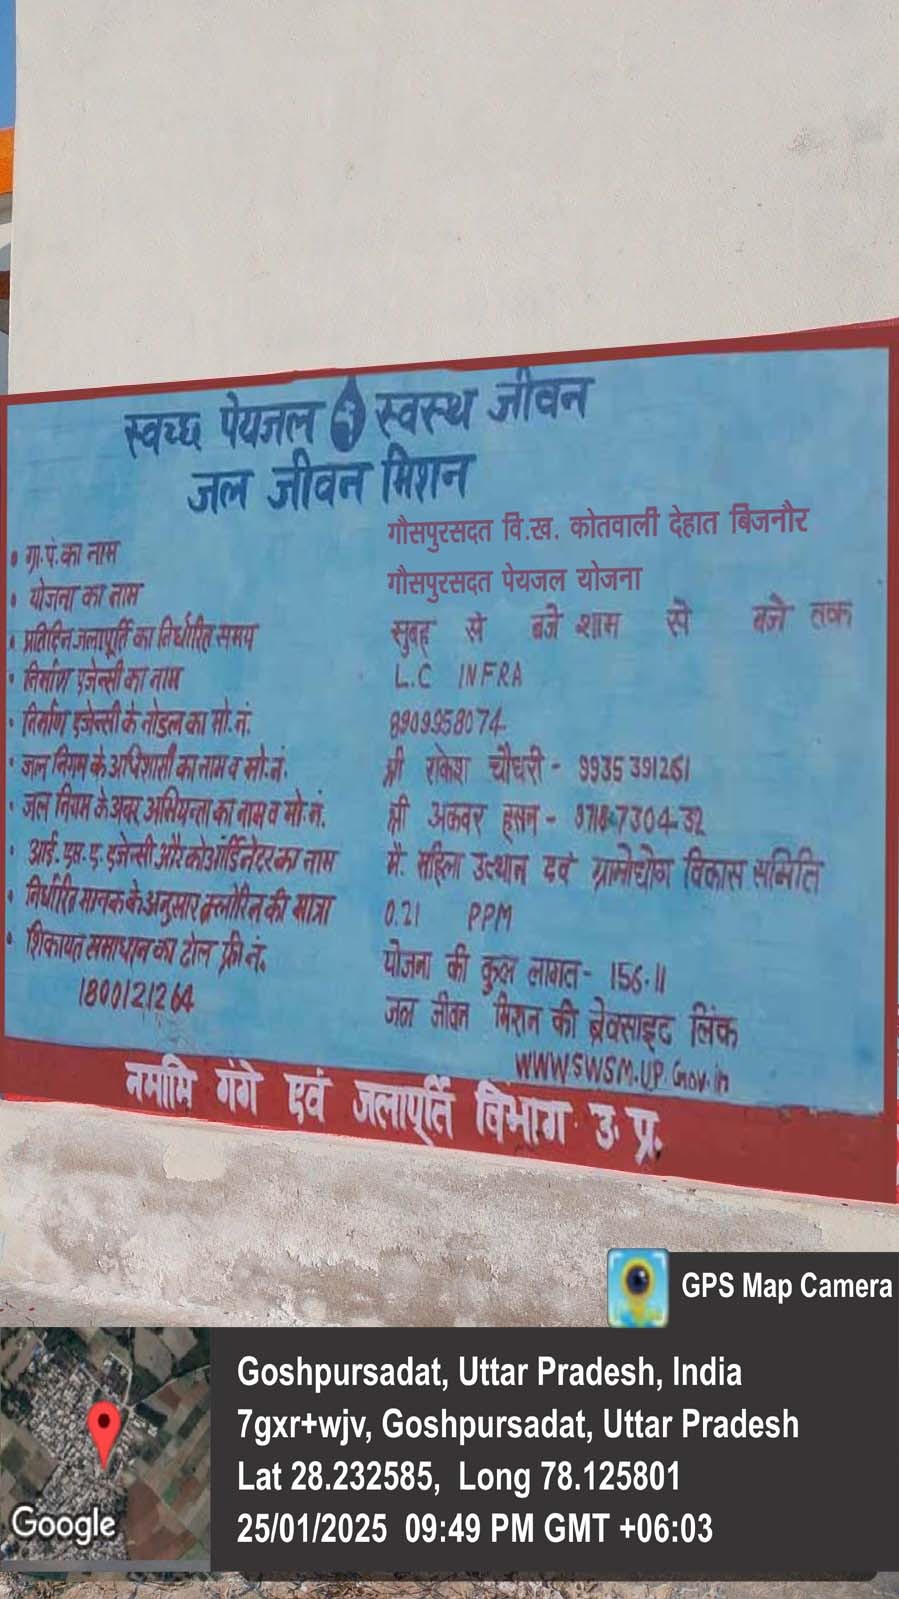 स्वच्छ पेयजल स्वस्थ जीवन
जल जीवन मिशन
• ग्रा.पं.का नाम गौसपुरसदत वि.ख. कोतवाली देहात बिजनौर
• योजना का नाम गौसपुरसदत पेयजल योजना
• प्रतिदिन जलापूर्ति का निर्धारित समय सुबह से बजे शाम से बजे तक
• निर्माण एजेन्सी का नाम L.C INFRA
• निर्माण एजेन्सी के नोडल का मो.नं. 8909958074
• जल निगम के अधिशासी का नाम व मो.नं. श्री राकेश चौधरी - 9935391261
• जल निगम के अवर अभियन्ता का नाम व मो.नं. श्री अकवर हसन -
• आई.एस.ए.एजेन्सी और कोऑर्डिनेटर का नाम मै. महिला उत्थान एवं ग्रामोधोग विकास समिति
• निर्धारित मानक के अनुसार क्लोरिन की मात्रा 0.21 PPM
• शिकायत समाधान का टोल फ्री नं. योजना की कुल लागत - 156.11
180012164 जल जीवन मिशन की बेवसाइट लिंक
WWW.SWSM.UP.Gov.in
नमामि गंगे एवं जलापूर्ति विभाग उ.प्र.
GPS Map Camera
Goshpursadat, Uttar Pradesh, India
7gxr+wjv, Goshpursadat, Uttar Pradesh
Lat 28.232585, Long 78.125801
25/01/2025 09:49 PM GMT +06:03
Google